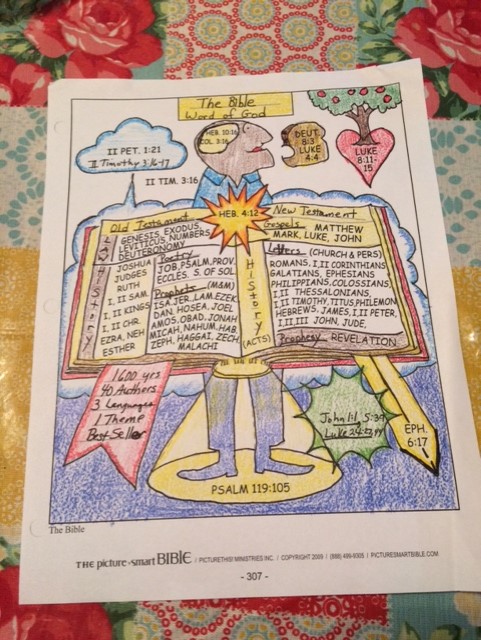 The Bible
Word of God
HEB. 10:16
COL. 3:16
DEUT.
8:3
LUKE
4:4
LUKE
8:11-
15
II PET. 1:21
II Timothy 3:16-17
II TIM. 3:16
HEB. 4:12
Old Testament
LAW
GENESIS, EXODUS,
LEVITICUS, NUMBERS
DEUTERONOMY
History
JOSHUA
JUDGES
RUTH
I, II SAM.
I, II KINGS
I, II CHR.
EZRA, NEH
ESTHER
Poetry
JOB, PSALM, PROV.
ECCLES. S. OF SOL.
Prophets (M&M)
ISA, JER, LAM, EZEK,
DAN, HOSEA, JOEL
AMOS, OBAD, JONAH
MICAH, NAHUM, HAB,
ZEPH, HAGGAI, ZECH,
MALACHI
History
(ACTS)
New Testament
Gospels MATTHEW
MARK, LUKE, JOHN
Letters (CHURCH & PERS)
ROMANS, I,II CORINTHIANS
GALATIANS, EPHESIANS
PHILIPPIANS, COLOSSIANS,
I,II THESSALONIANS,
I,II TIMOTHY, TITUS, PHILEMON
HEBREWS, JAMES, I,II PETER,
I,II,III JOHN, JUDE,
Prophesy REVELATION
1600 yrs
40 Authors
3 Languages
1 Theme
Best Seller
John 1:1, 5:39
Luke 24:27,44
EPH.
6:17
PSALM 119:105
The Bible
THE picture smart BIBLE / PICTURE THIS! MINISTRIES INC. / COPYRIGHT 2009 / (888) 499-9305 / PICTURESMARTBIBLE.COM
- 307 -